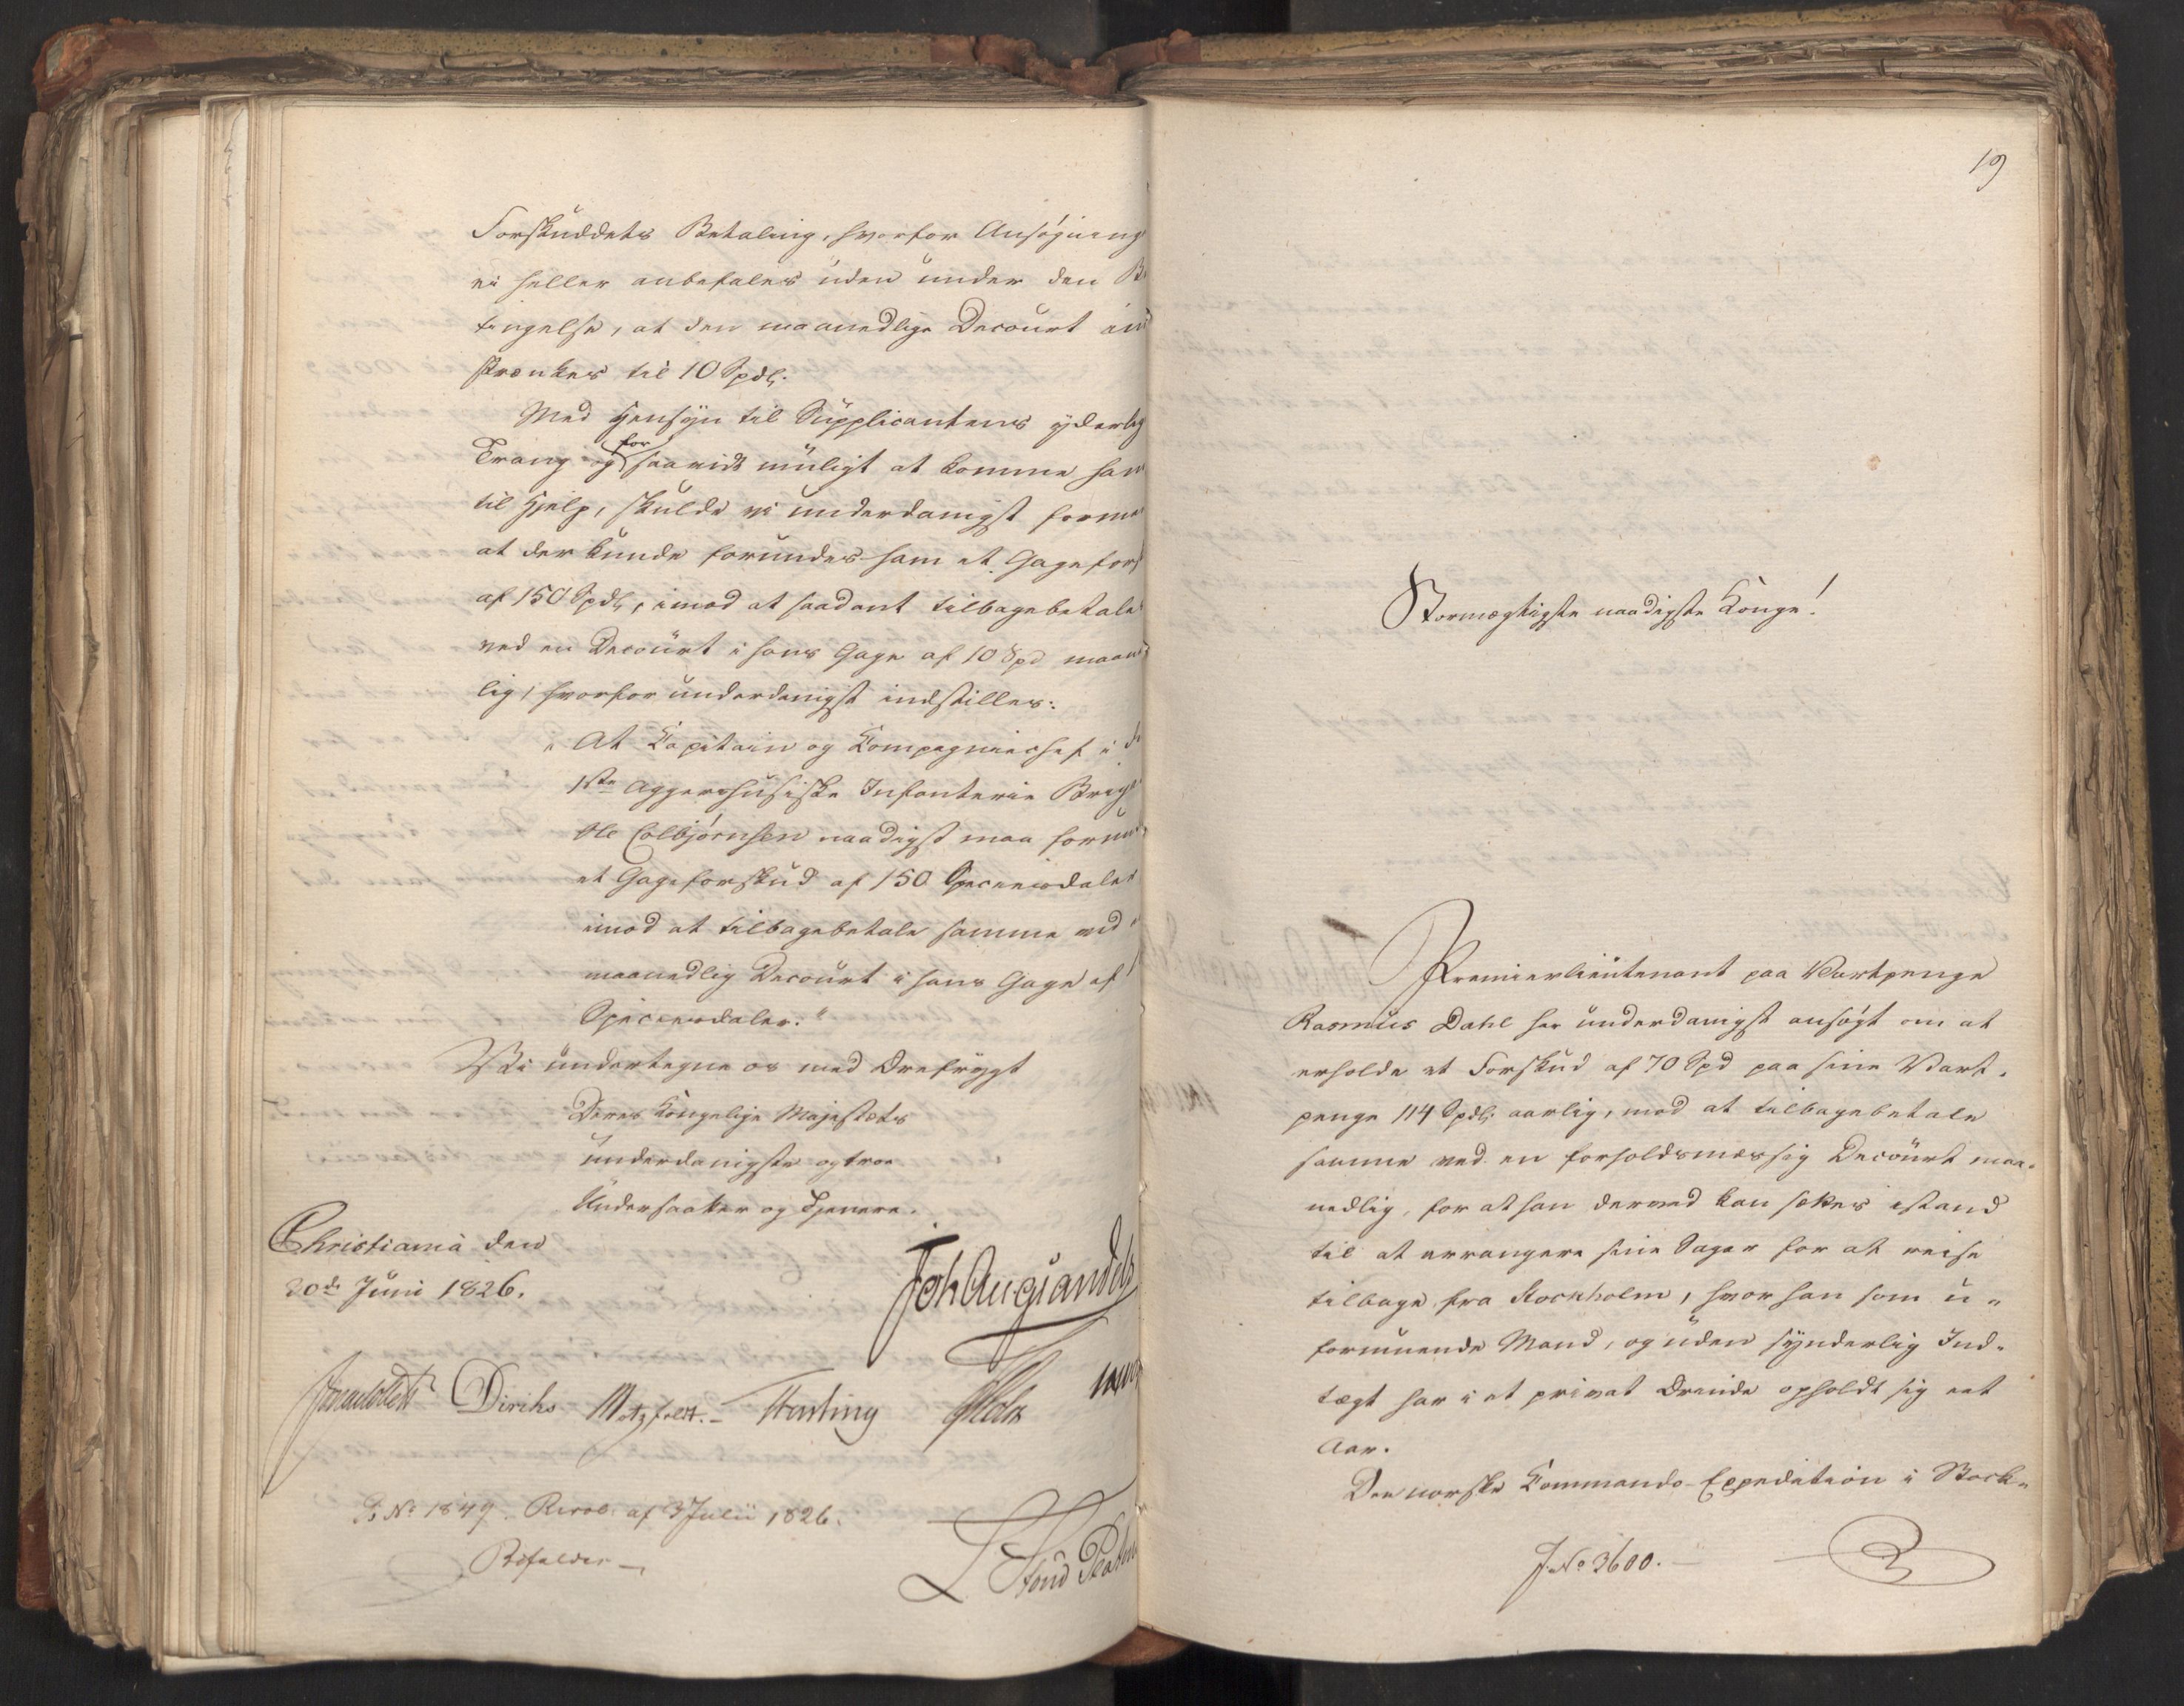 Forskuddets Betaling, hvorfor Ansøgning
ei heller anbefales uden under den Be
tingelse, at den maanedlige Decourt ind
skrænkes til 10 Spdlr.
Med Hensyn til Supplicantens yderlig
Trang og for saavidt muligt at komme ham
til Hjelp, skulde vi underdanigst forme
at der kunde forundes ham et Gageforsk
af 150 Spdlr, imod at saadant tilbagebetale
ved en Decourt i hans Gage af 10 Spd maaned
lig, hvorfor underdanigst indstilles:
"At Kapitain og Kompagniechef i de
1ste Aggershusiske Infanterie Briga
Ole Colbjørnsen naadigst maa forund
et Gageforskud af 150 Speciesdaler
imod at tilbagebetale samme ved e
maanedlig Decourt i hans Gage af 1
Speciesdaler."
Vi undertegne os med Ærefrygt
Deres Kongelige Majestæts
underdanigste og troe
Undersaatter og Tjenere.
Christiania den
20de Juni 1826.
Joh Aug Sandels
Diriks Motzfeldt. Fasting
P. No 1849. Resol. af 3 Julii 1826.
Bifaldes
19
Stormægtigste naadigste Konge!
Premierlieutenant paa Vartpenge
Rasmus Dahl har underdanigst ansøgt om at
erholde et Forskud af 70 Spd paa sine Vart-
penge 114 Spdlr aarlig, mod at tilbagebetale
samme ved en forholdsmæssig Decourt maa-
nedlig, for at han derved kan sættes istand
til at arrangere sine Sager for at reise
tilbage fra Stockholm, hvor han som u-
formuende Mand, og uden synderlig Ind-
tægt har i et privat Ærinde opholdt sig eet
Aar.
Den norske Kommando-Expedition i Stock-
J. No 3600.